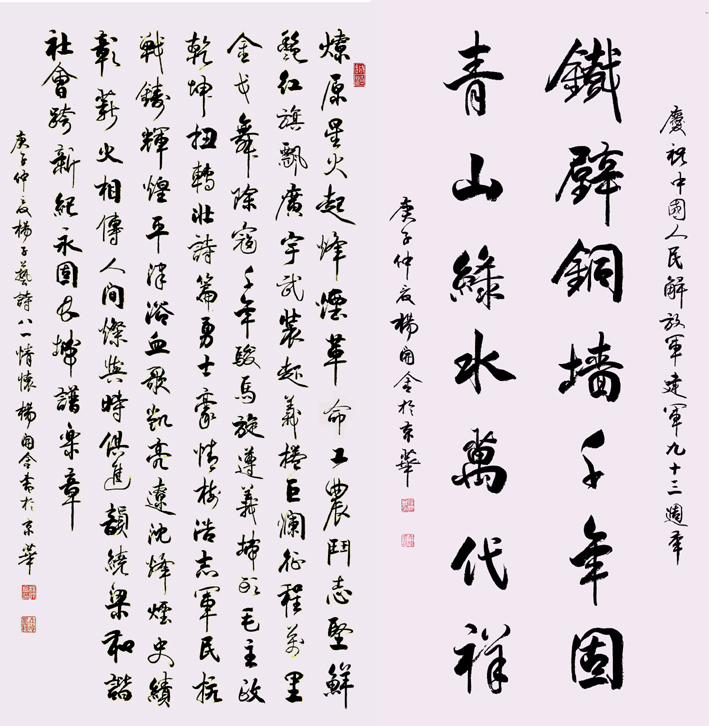 慶祝中國人民解放軍建軍九十三週年
鐵壁銅墙千年固
青山綠水萬代祥
庚子仲夏楊開金於京華
燎原星火起烽煙革命工農鬥志堅鮮
艷紅旗飄廣宇武裝起義捲巨瀾征程萬里
金戈舞除寇千年駿馬旋遵義毛主政
乾坤扭轉壮詩篇勇士豪情樹浩志軍民抗
戰鑄輝煌平津浴血歌凱亮遼沈烽煙史績
彰薪火相傳人间燦與時俱進韻繞梁和諧
社會跨新紀永固長城譜樂章
庚子仲夏楊子藝詩八一情懷楊開金書於京華